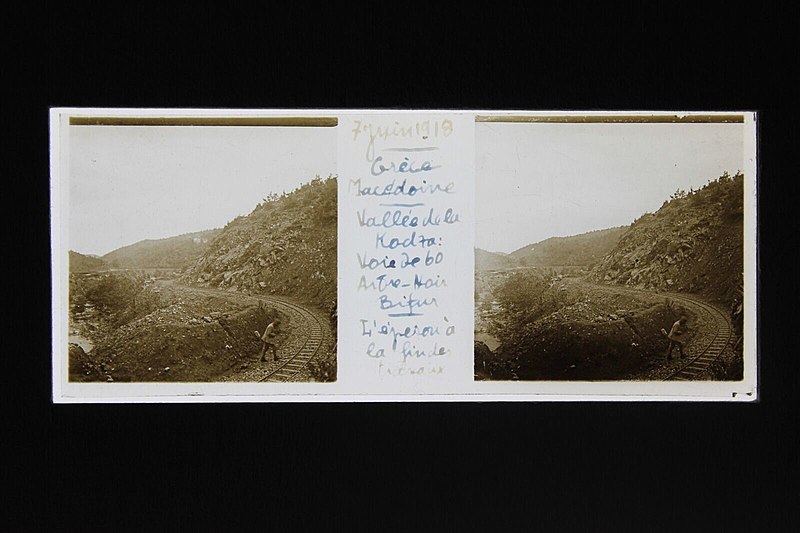 7 juin 1918
Grèce
Macédoine
Vallée de la
Kodza:
Voie de 60
L'éperon à
la fin des
travaux